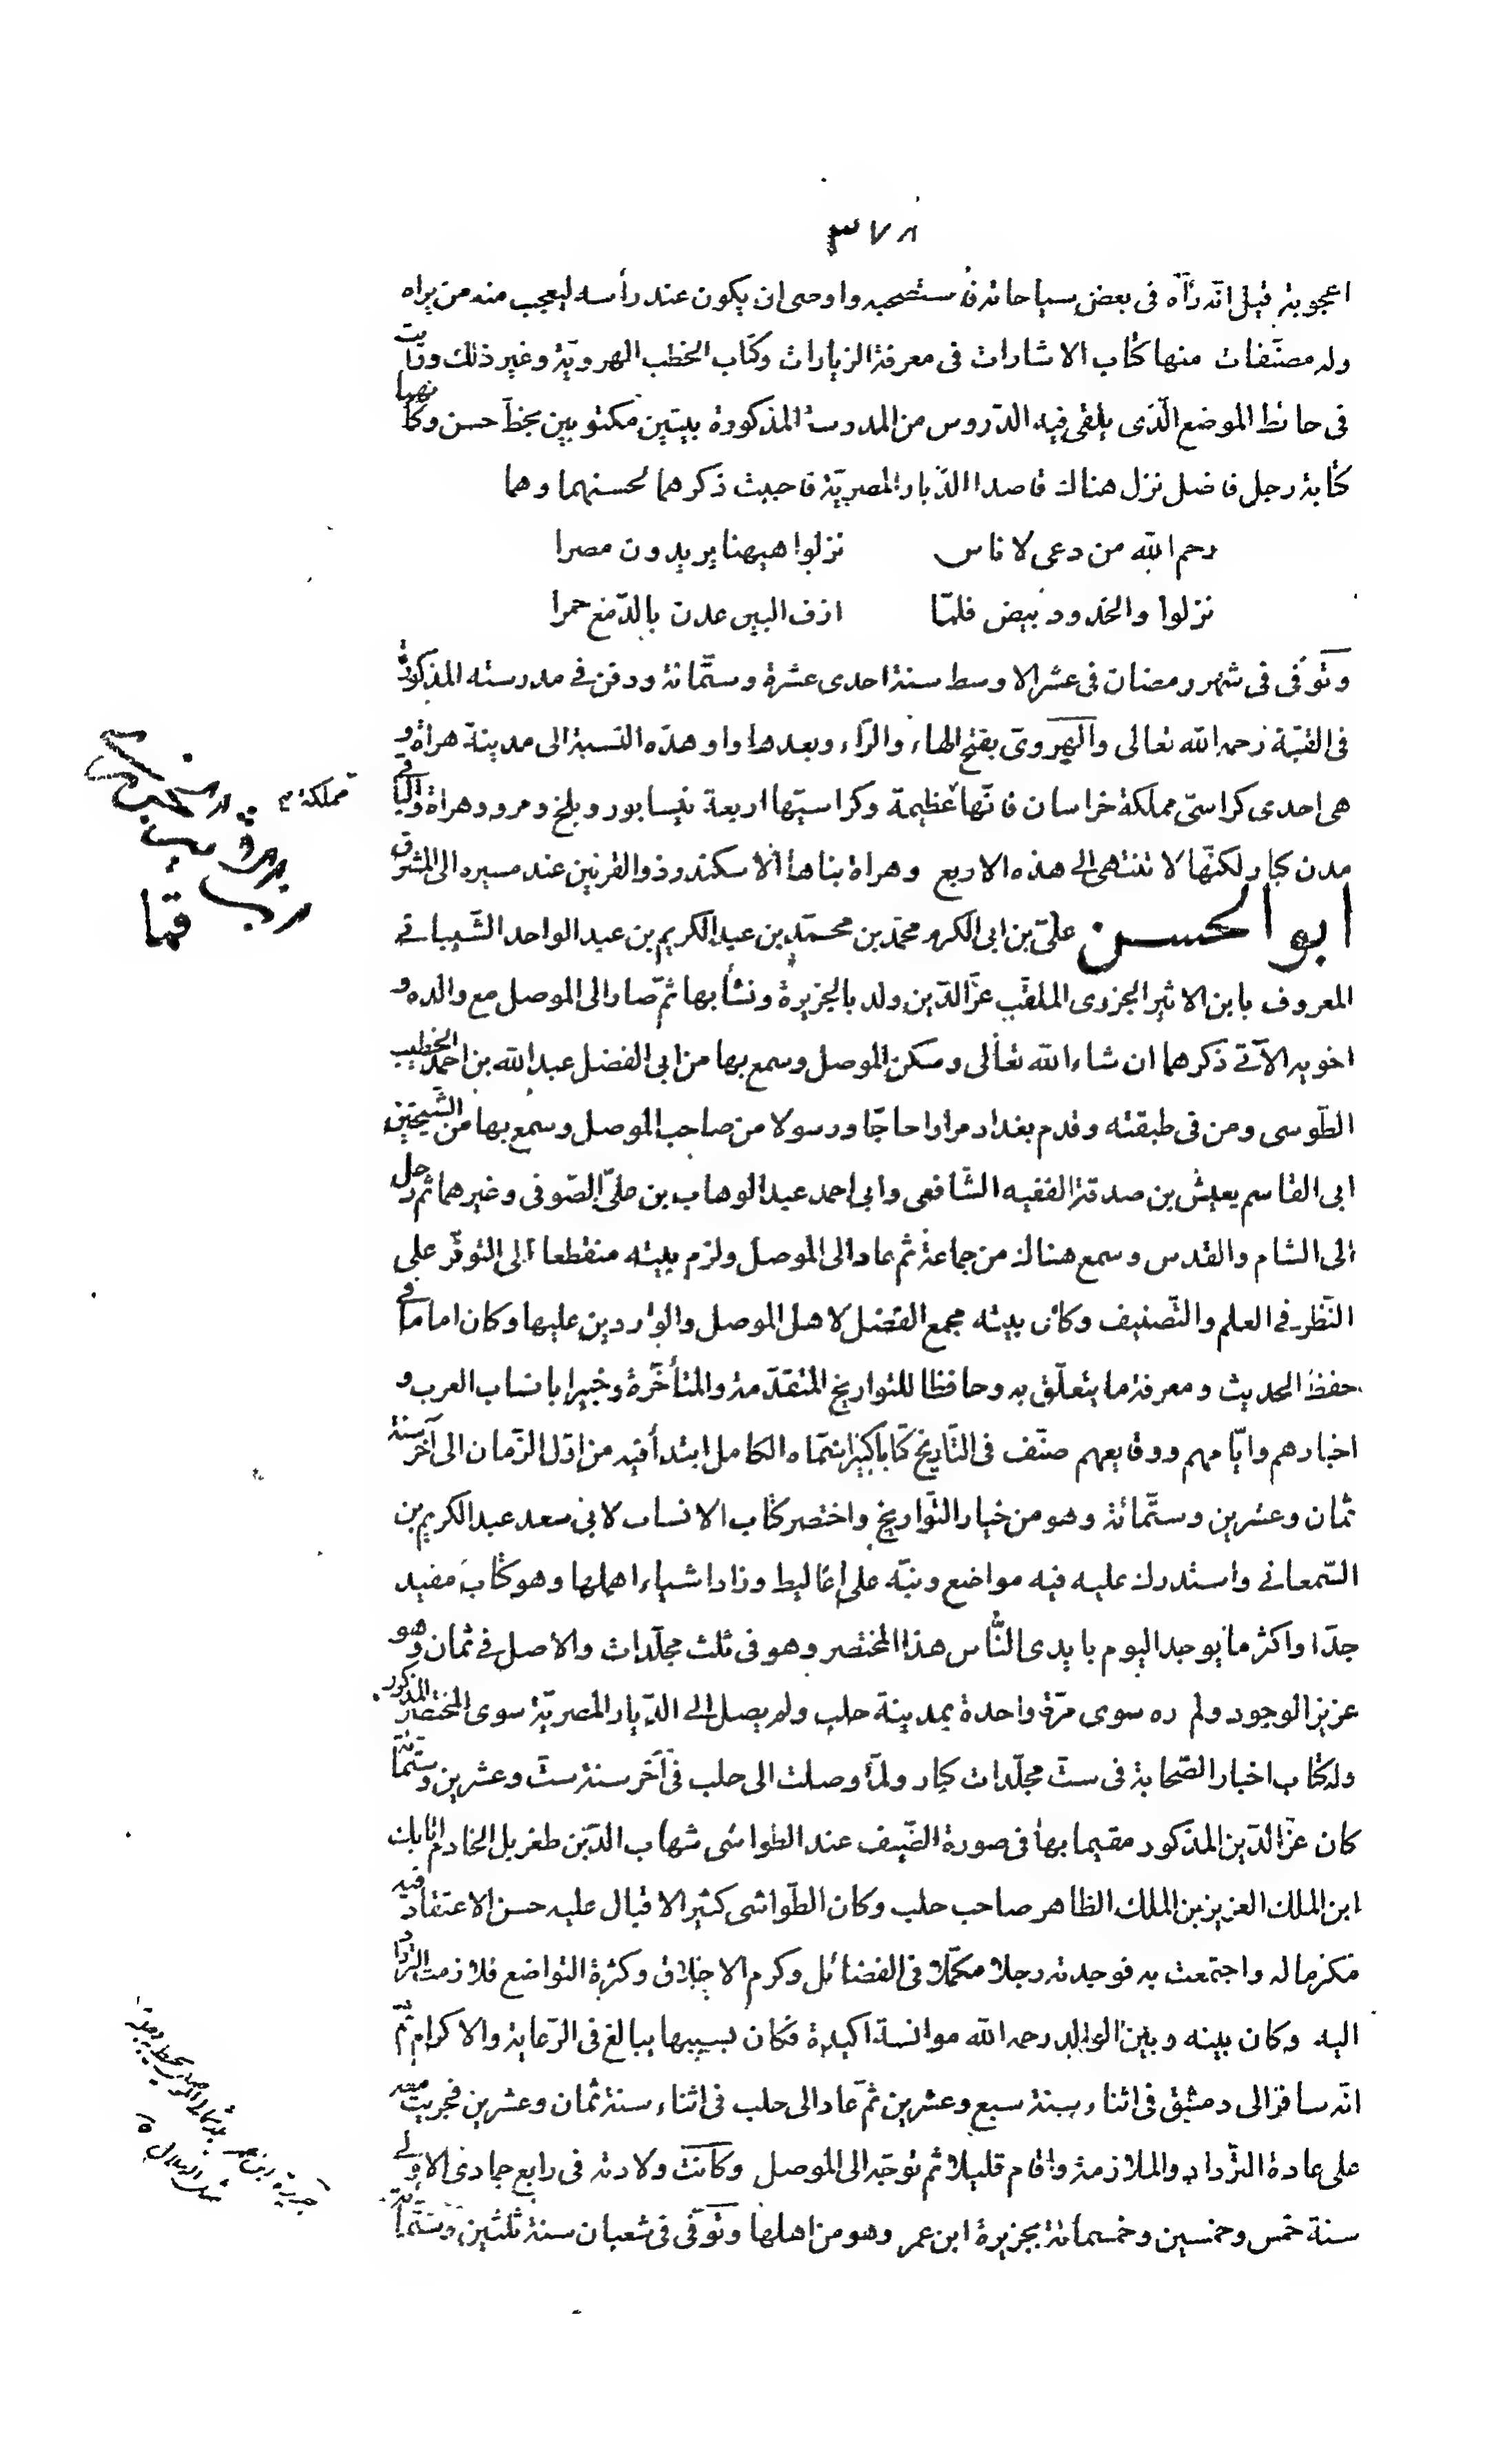 ٣٧٨
اعجوبة قيل انّه رآه فى بعض سياحاته فاستصحبه واوصى ان يكون عند رأسه ليعجب منه من يراه
وله مصنّفات منها كتاب الاشارات فى معرفة الزيارات وكتاب الخطب الهرويّة وغير ذلك ورأيت
فى حائط الموضع الّذى يلقى فيه الدّروس من المدرسة المذكورة بيتين مكتوبين بخطّ حسن وكأنهما
كتابة رجل فاضل نزل هناك قاصدا الدّيار المصريّة فاحببت ذكرهما لحسنهما وهما
رحم الله من دعى لاناس نزلوا هيهنا يريدون مصرا
نزلوا والخدود بيض فلمّا ازف البين عدن بالدّمع حمرا
وتوفّى فى شهر رمضان فى عشر الاوسط سنة احدى عشرة وستّمائة ودفن فى مدرسته المذكورة
فى القبّة رحمه الله تعالى والهروىّ بفتح الهاء والرّاء وبعدها واو وهذه النّسبة الى مدينة هراة و
هى احدى كراسىّ مملكة خراسان فانّها عظيمة وكراسيّها اربعة نيسابور وبلخ ومرو وهراة والباقى
مدن كبار لكنّها لا تنتهى الى هذه الاربع وهراة بناها الاسكندر ذو القرنين عند مسيره الى المشرق
ابو الحسن علىّ بن ابى الكرم محمّد بن محمّد بن عبد الكريم بن عبد الواحد الشّيبانى
المعروف بابن الاثير الجزرى الملقّب عزّ الدّين ولد بالجزيرة ونشأ بها ثمّ صار الى الموصل مع والده و
اخويه الآتى ذكرهما ان شاء الله تعالى وسكن الموصل وسمع بها من ابى الفضل عبد الله بن احمد الخطيب
الطّوسى ومن فى طبقته وقدم بغداد مرارا حاجّا ورسولا من صاحب الموصل وسمع بها من الشّيخين
ابى القاسم يعيش بن صدقة الفقيه الشّافعى وابى احمد عبد الوهاب بن علىّ الصّوفى وغيرهما ثم رحل
الى الشام والقدس وسمع هناك من جماعة ثم عاد الى الموصل ولزم بيته منقطعا الى التوفّر على
النّظر فى العلم والتّصنيف وكان بيته مجمع الفضل لاهل الموصل والواردين عليها وكان اماما فى
حفظ الحديث ومعرفة ما يتعلّق به وحافظا للتواريخ المتقدّمة والمتأخّرة وخبيرا بانساب العرب و
اخبارهم وايّامهم ووقايعهم صنّف فى التّاريخ كتابا كبيرا سمّاه الكامل ابتدأ فيه من اوّل الزّمان الى آخر سنة
ثمان وعشرين وستّمائة وهو من خيار التّواريخ واختصر كتاب الانساب لابى سعد عبد الكريم بن
السّمعانى واستدرك عليه فيه مواضع ونبّه على اغاليط وزاد اشياء اهملها وهو كتاب مفيد
جدّا واكثر ما يوجد اليوم بايدى النّاس هذا المختصر وهو فى ثلث مجلّدات والاصل فى ثمان وهو
عزيز الوجود ولم ره سوى مرّة واحدة بمدينة حلب ولم يصل الى الدّيار المصريّة سوى المختصر المذكور
وله كتاب اخبار الصّحابة فى ستّ مجلّدات كبار ولمّا وصلت الى حلب فى آخر سنة ستّ وعشرين وستّمائة
كان عزّ الدّين المذكور مقيما بها فى صورة الضّيف عند الطواشى شهاب الدّين طغريل الخادم اتابك
ابن الملك العزيز بن الملك الظاهر صاحب حلب وكان الطّواشى كثير الاقبال عليه حسن الاعتقاد فيه
مكرما له واجتمعت به فوجدته رجلا مكمّلا فى الفضائل وكرم الاخلاق وكثرة التواضع فلازمت التّرداد
اليه وكان بينه وبين الوالد رحمه الله موانسة اكيدة فكان بسببها يبالغ فى الرّعاية والاكرام ثمّ
انّه سافر الى دمشق فى اثناء سنة سبع وعشرين ثمّ عاد الى حلب فى اثناء سنة ثمان وعشرين فجريت معه
على عادة التّرداد والملازمة واقام قليلا ثم توجّه الى الموصل وكانت ولادته فى رابع جمادى الاولى
سنة خمس وخمسين وخمسمائة بجزيرة ابن عمر وهو من اهلها وتوفّى فى شعبان سنة ثلثين وستّمائة
مملكة م